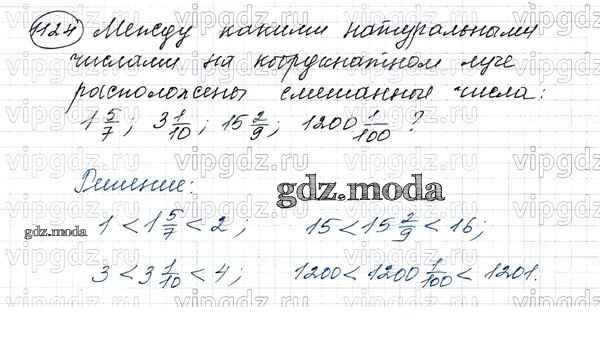 1124 Между какими натуральными
числами на координатном луче
расположены смешанные числа:
1 5/7; 3 1/10; 15 2/9; 1200 1/100 ?
Решение:
gdz.moda
gdz.moda
1 < 1 5/7 < 2; 15 < 15 2/9 < 16;
3 < 3 1/10 < 4; 1200 < 1200 1/100 < 1201.
vipgdz.ru